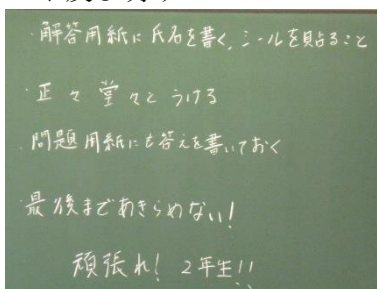 ・解答用紙に氏名を書く、シールを貼ること
・正々堂々とうける
・問題用紙にも答えを書いておく
・最後まであきらめない!
頑張れ! 2年生!!